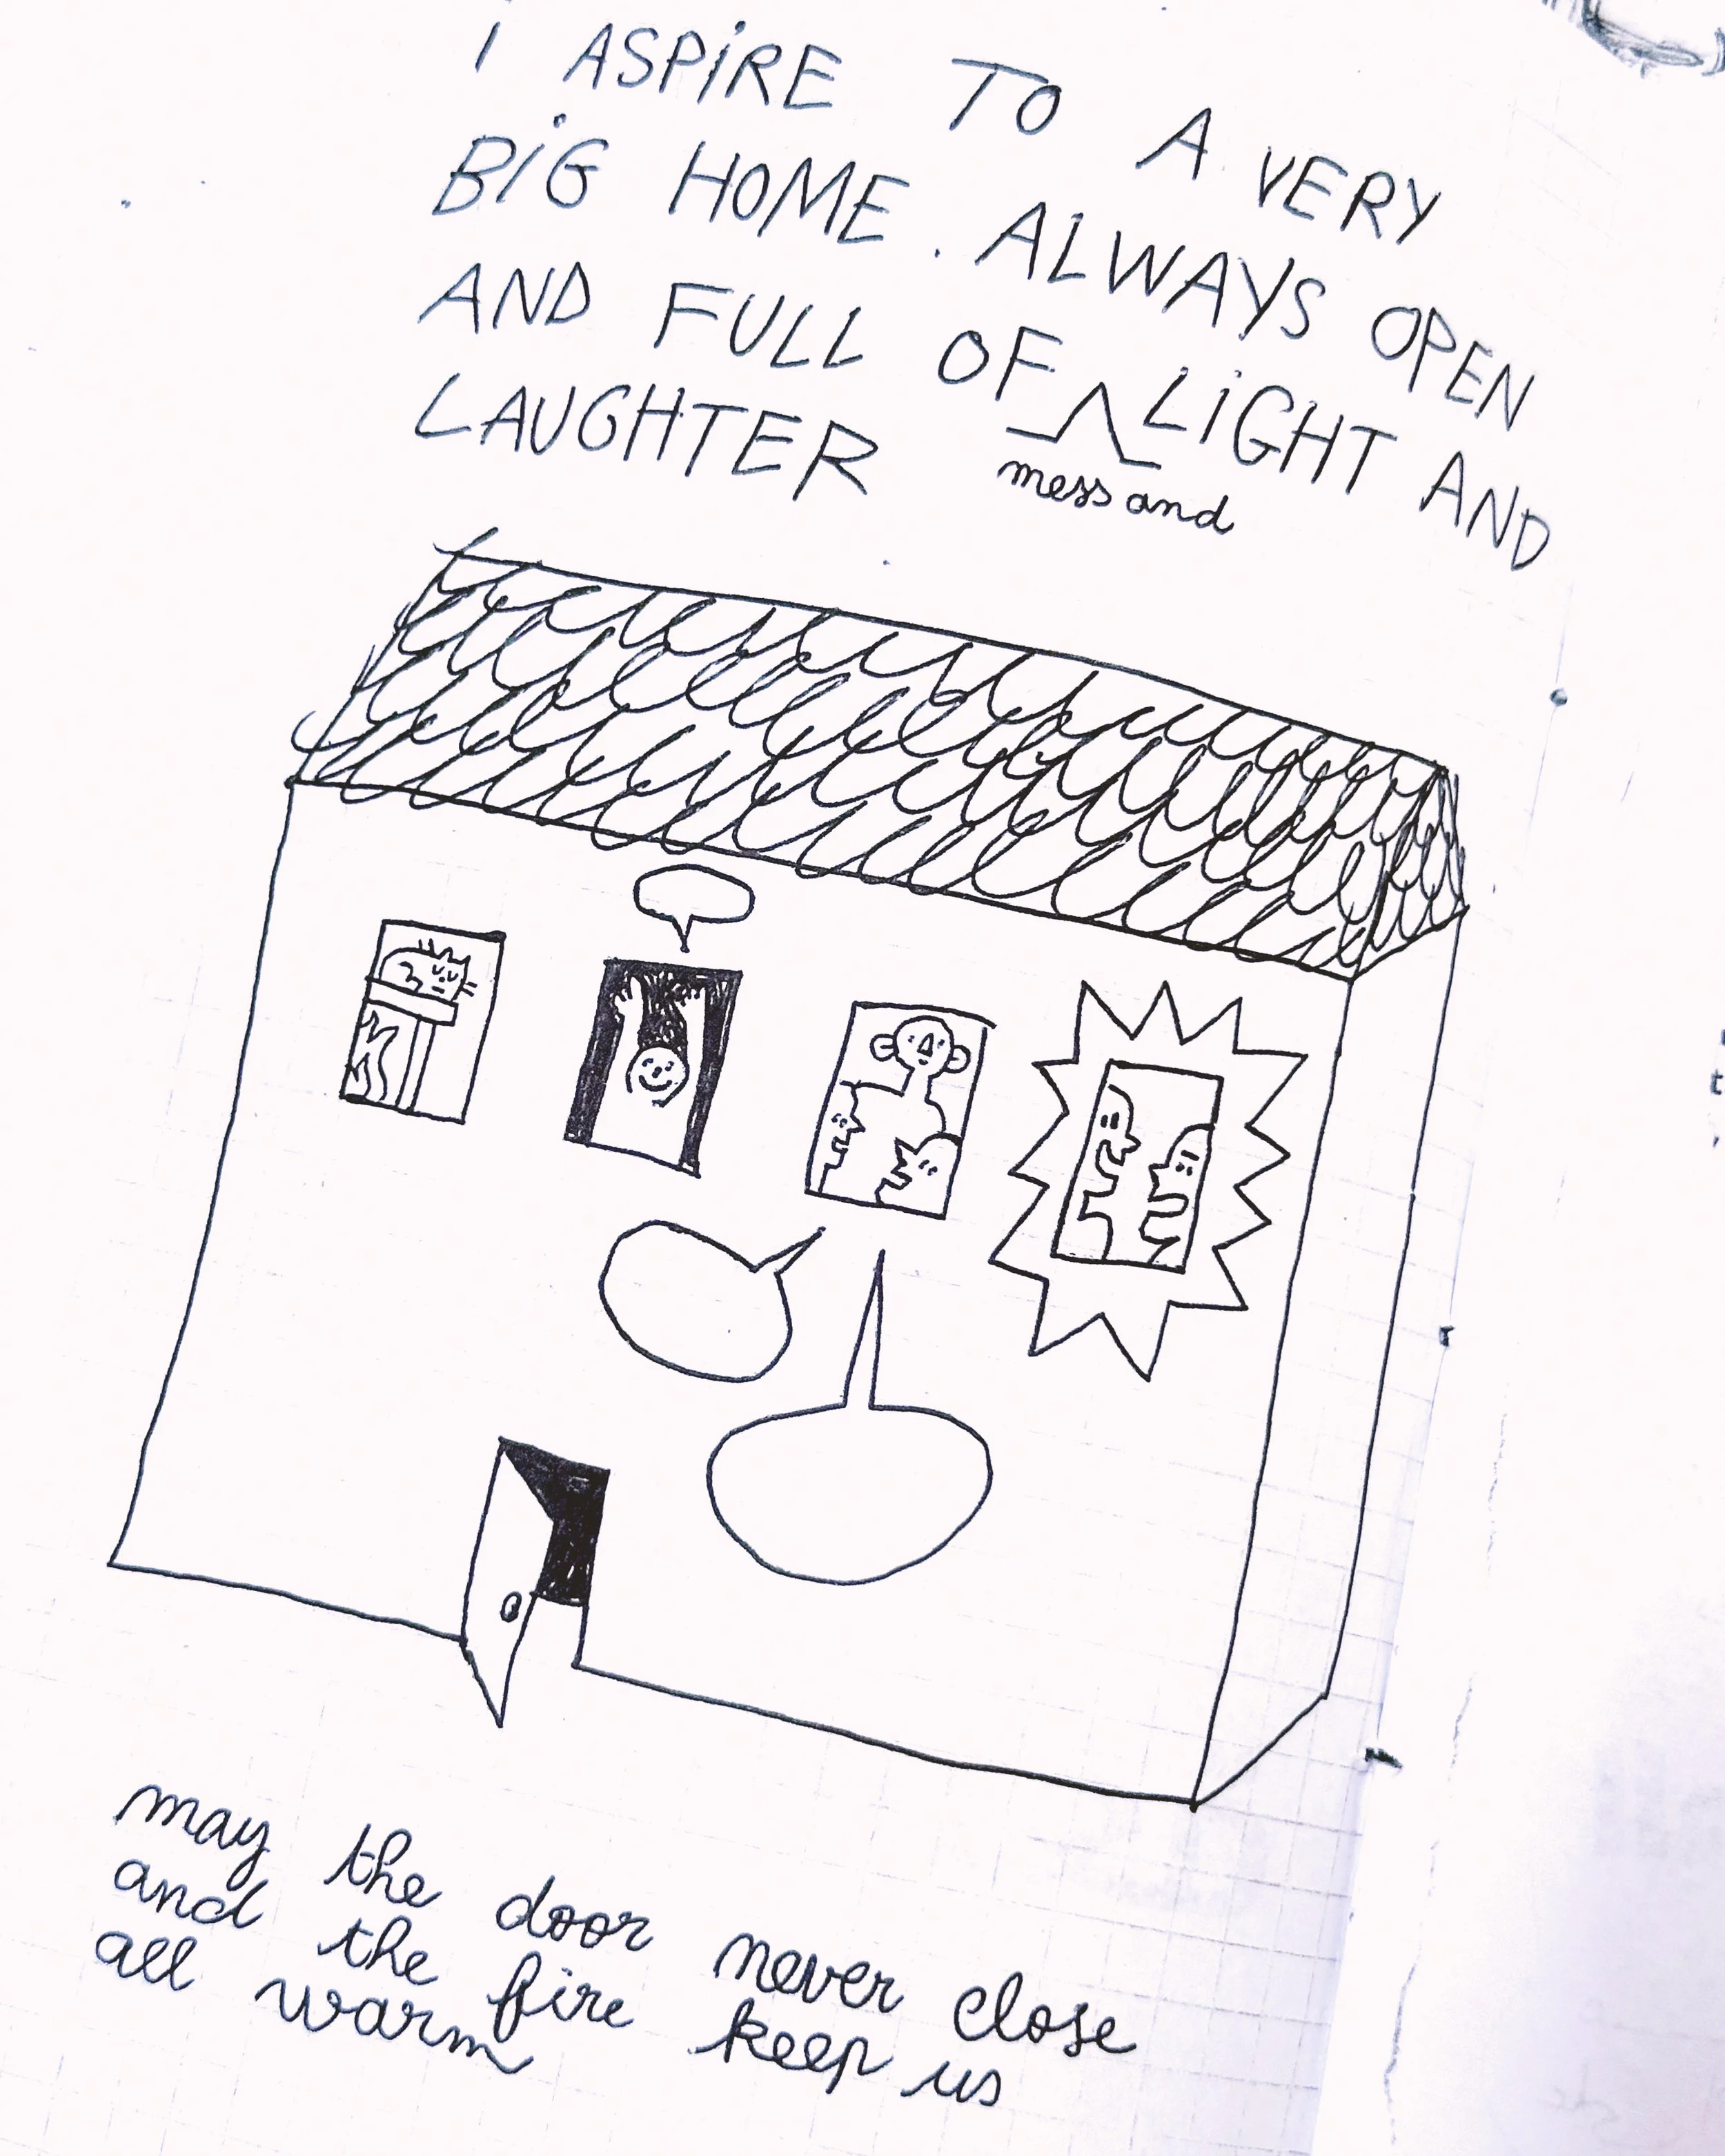 I ASPiRE TO A VERY
BiG HOME. ALWAYS OPEN
AND FULL OF LiGHT AND
mess and
LAUGHTER
may the door never close
and the fire keep us
all warm